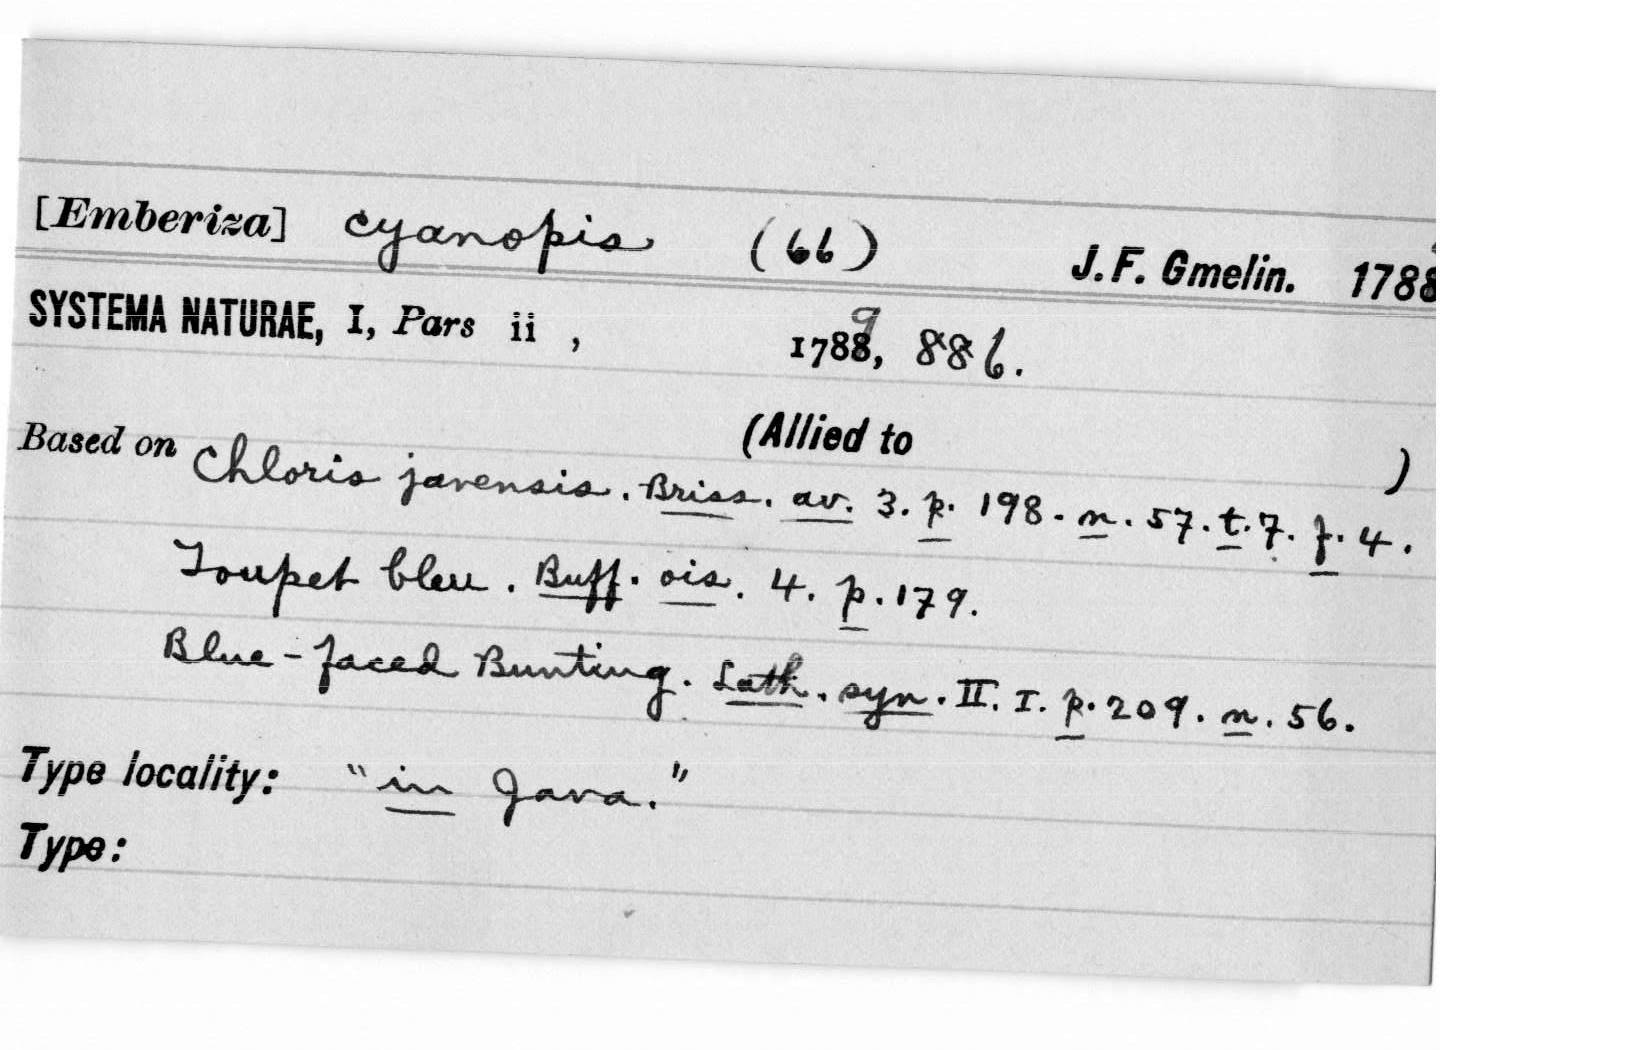 [Emberiza] cyanopis (66) J. F. Gmelin. 1788
SYSTEMA NATURAE, I, Pars ii , 1788, 9 886.
Based on (Allied to )
Chloris javensis. Briss. av. 3. p. 198. n. 57. t. 7. f. 4.
Toupet bleu. Buff. ois. 4. p. 179.
Blue-faced Bunting. Lath. syn. II. I. p. 209. n. 56.
Type locality: "in Java."
Type: